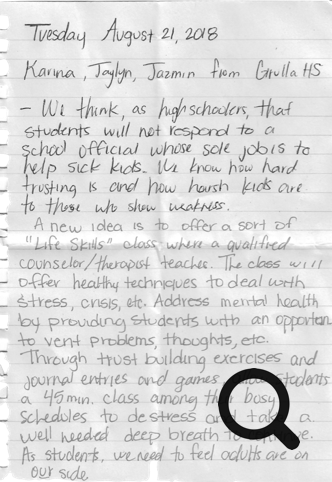 Tuesday August 21, 2018
Karina, Jaylyn, Jazmin from Grulla HS
- We think, as highschoolers, that
students will not respond to a
school official whose sole job is to
help sick kids. We know how hard
trusting is and how harsh kids are
to those who show weakness.
A new idea is to offer a sort of
"Life Skills" class where a qualified
counselor/therapist teaches. The class will
offer healthy techniques to deal with
stress, crisis, etc. Address mental health
by providing students with an opportun
to vent problems, thoughts, etc.
Through trust building exercises and
journal entries and games students
a 45 min. class among their busy
schedules to destress and take a
well needed deep breath to
As students, we need to feel adults are on
our side